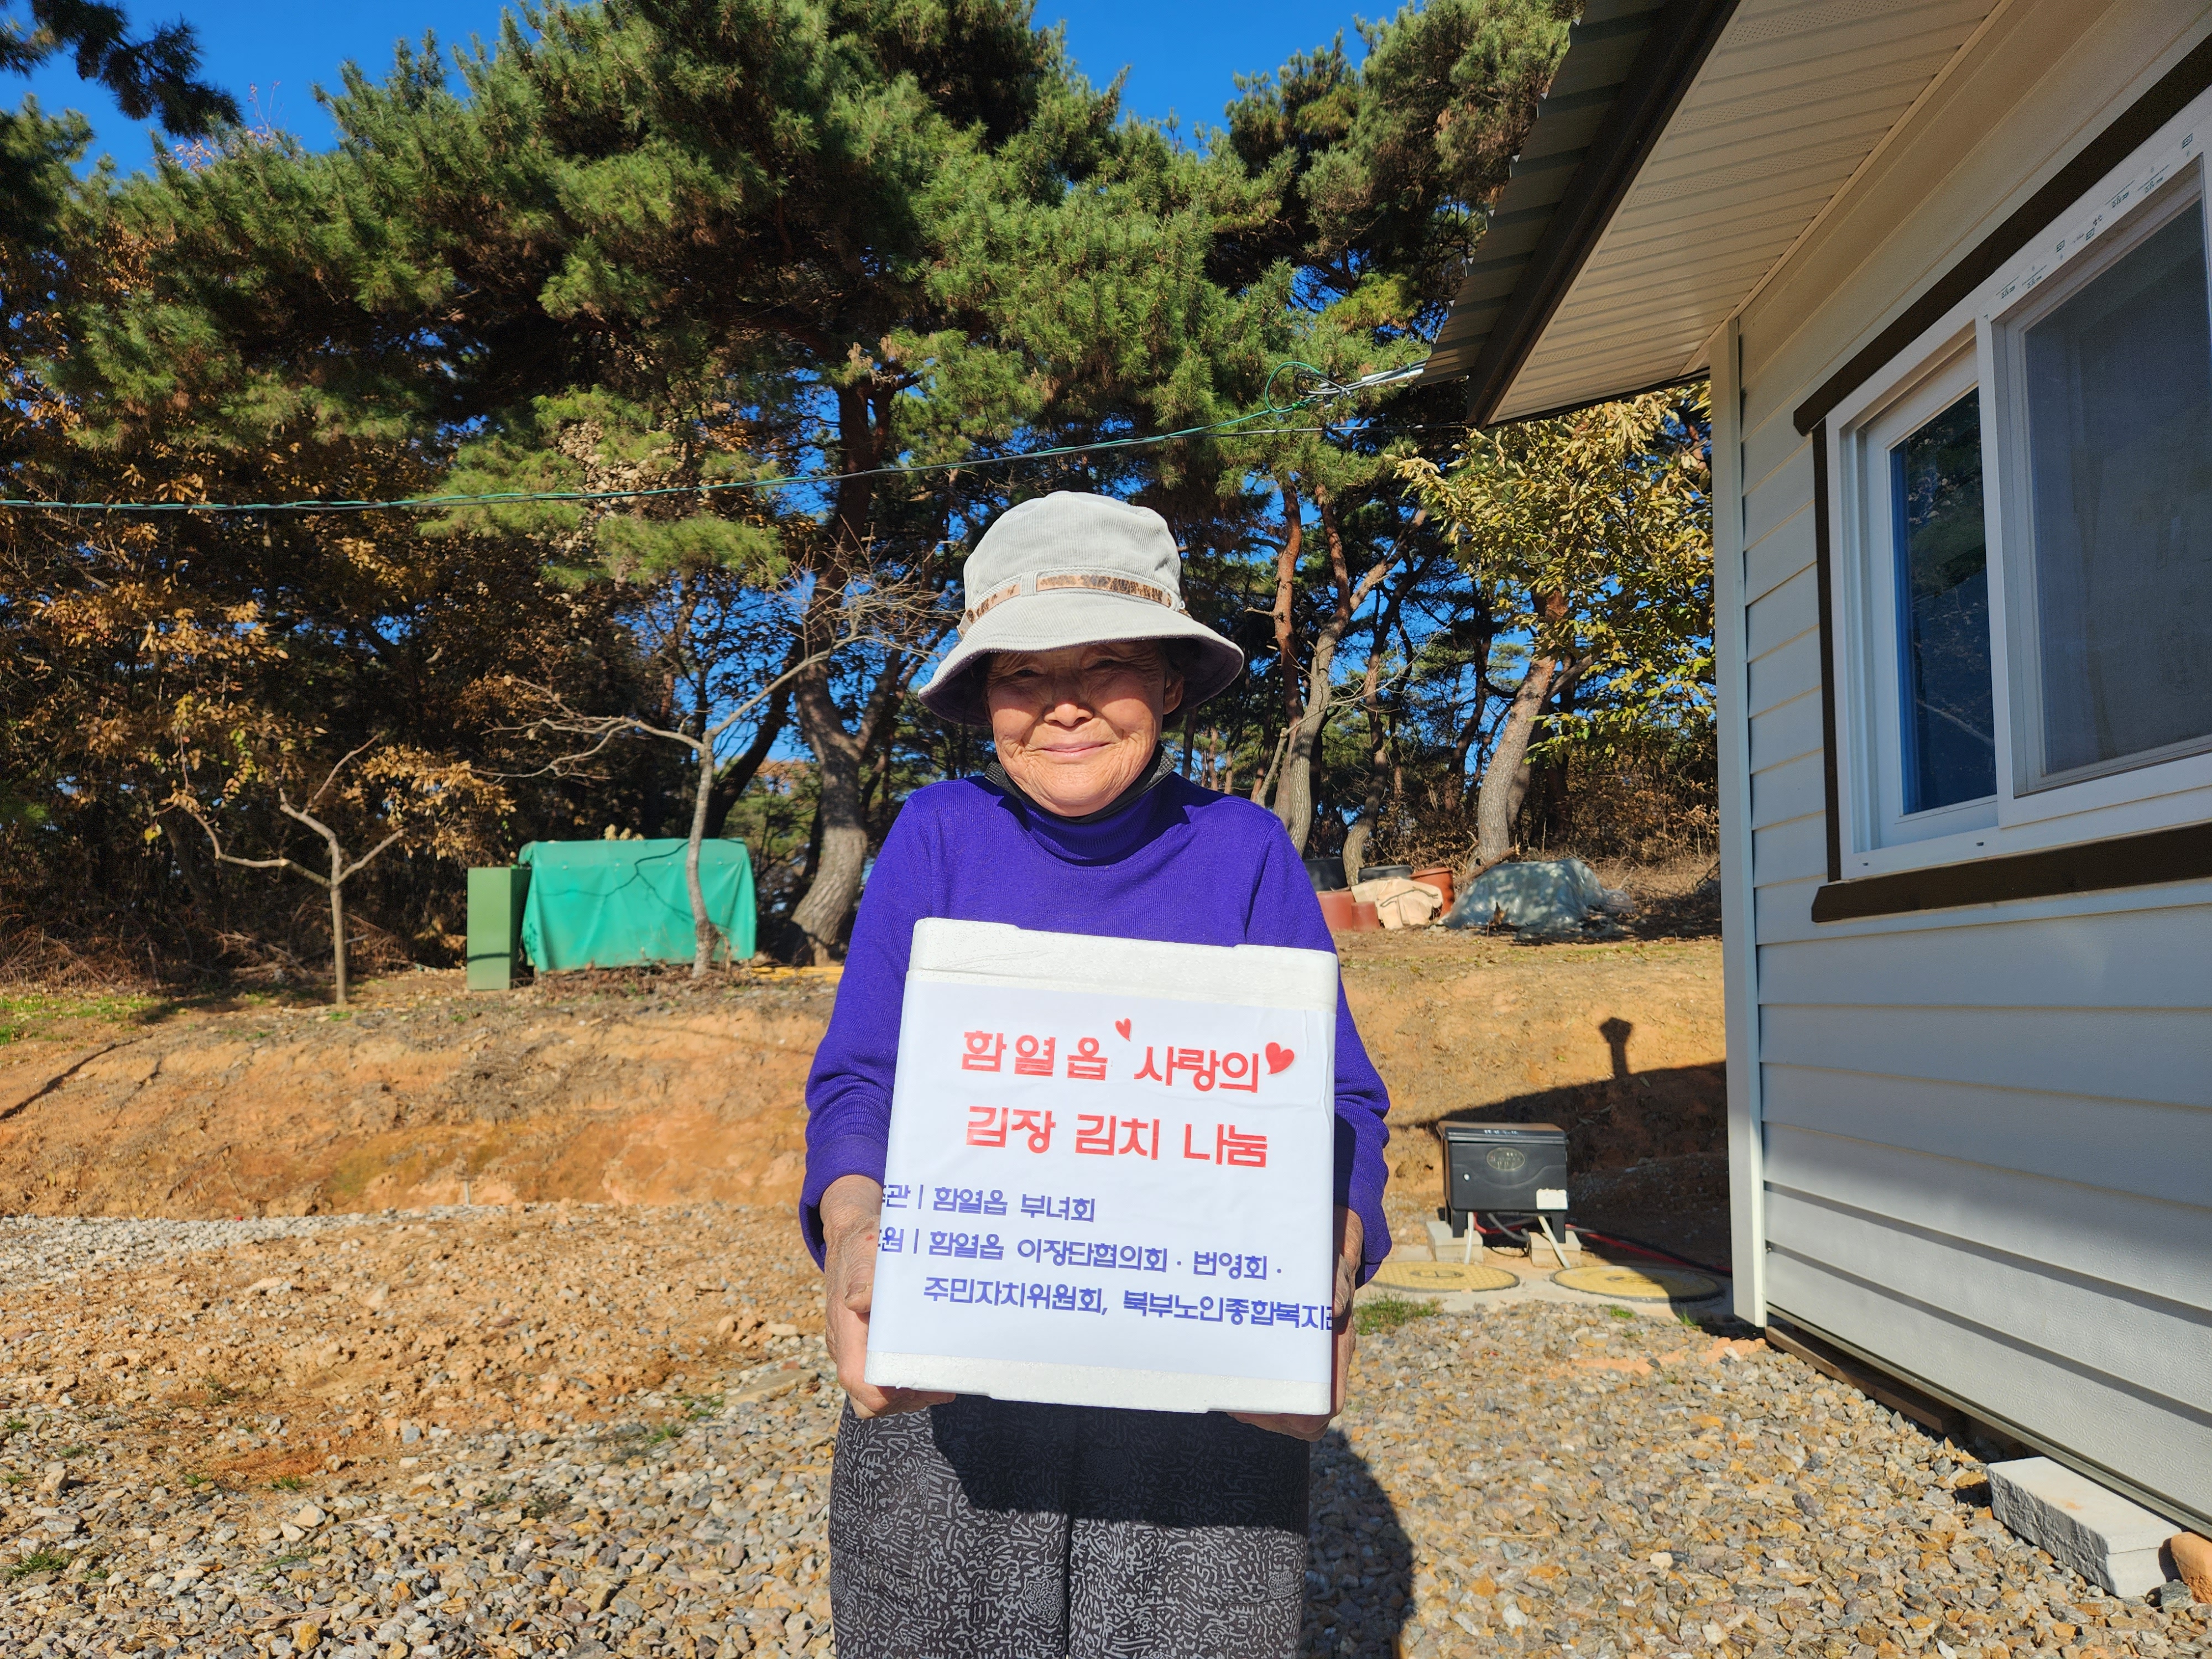 함열읍 사랑의
김장 김치 나눔
관 | 함열읍 부녀회
원 | 함열읍 이장단협의회 · 번영회 ·
주민자치위원회, 북부노인종합복지관